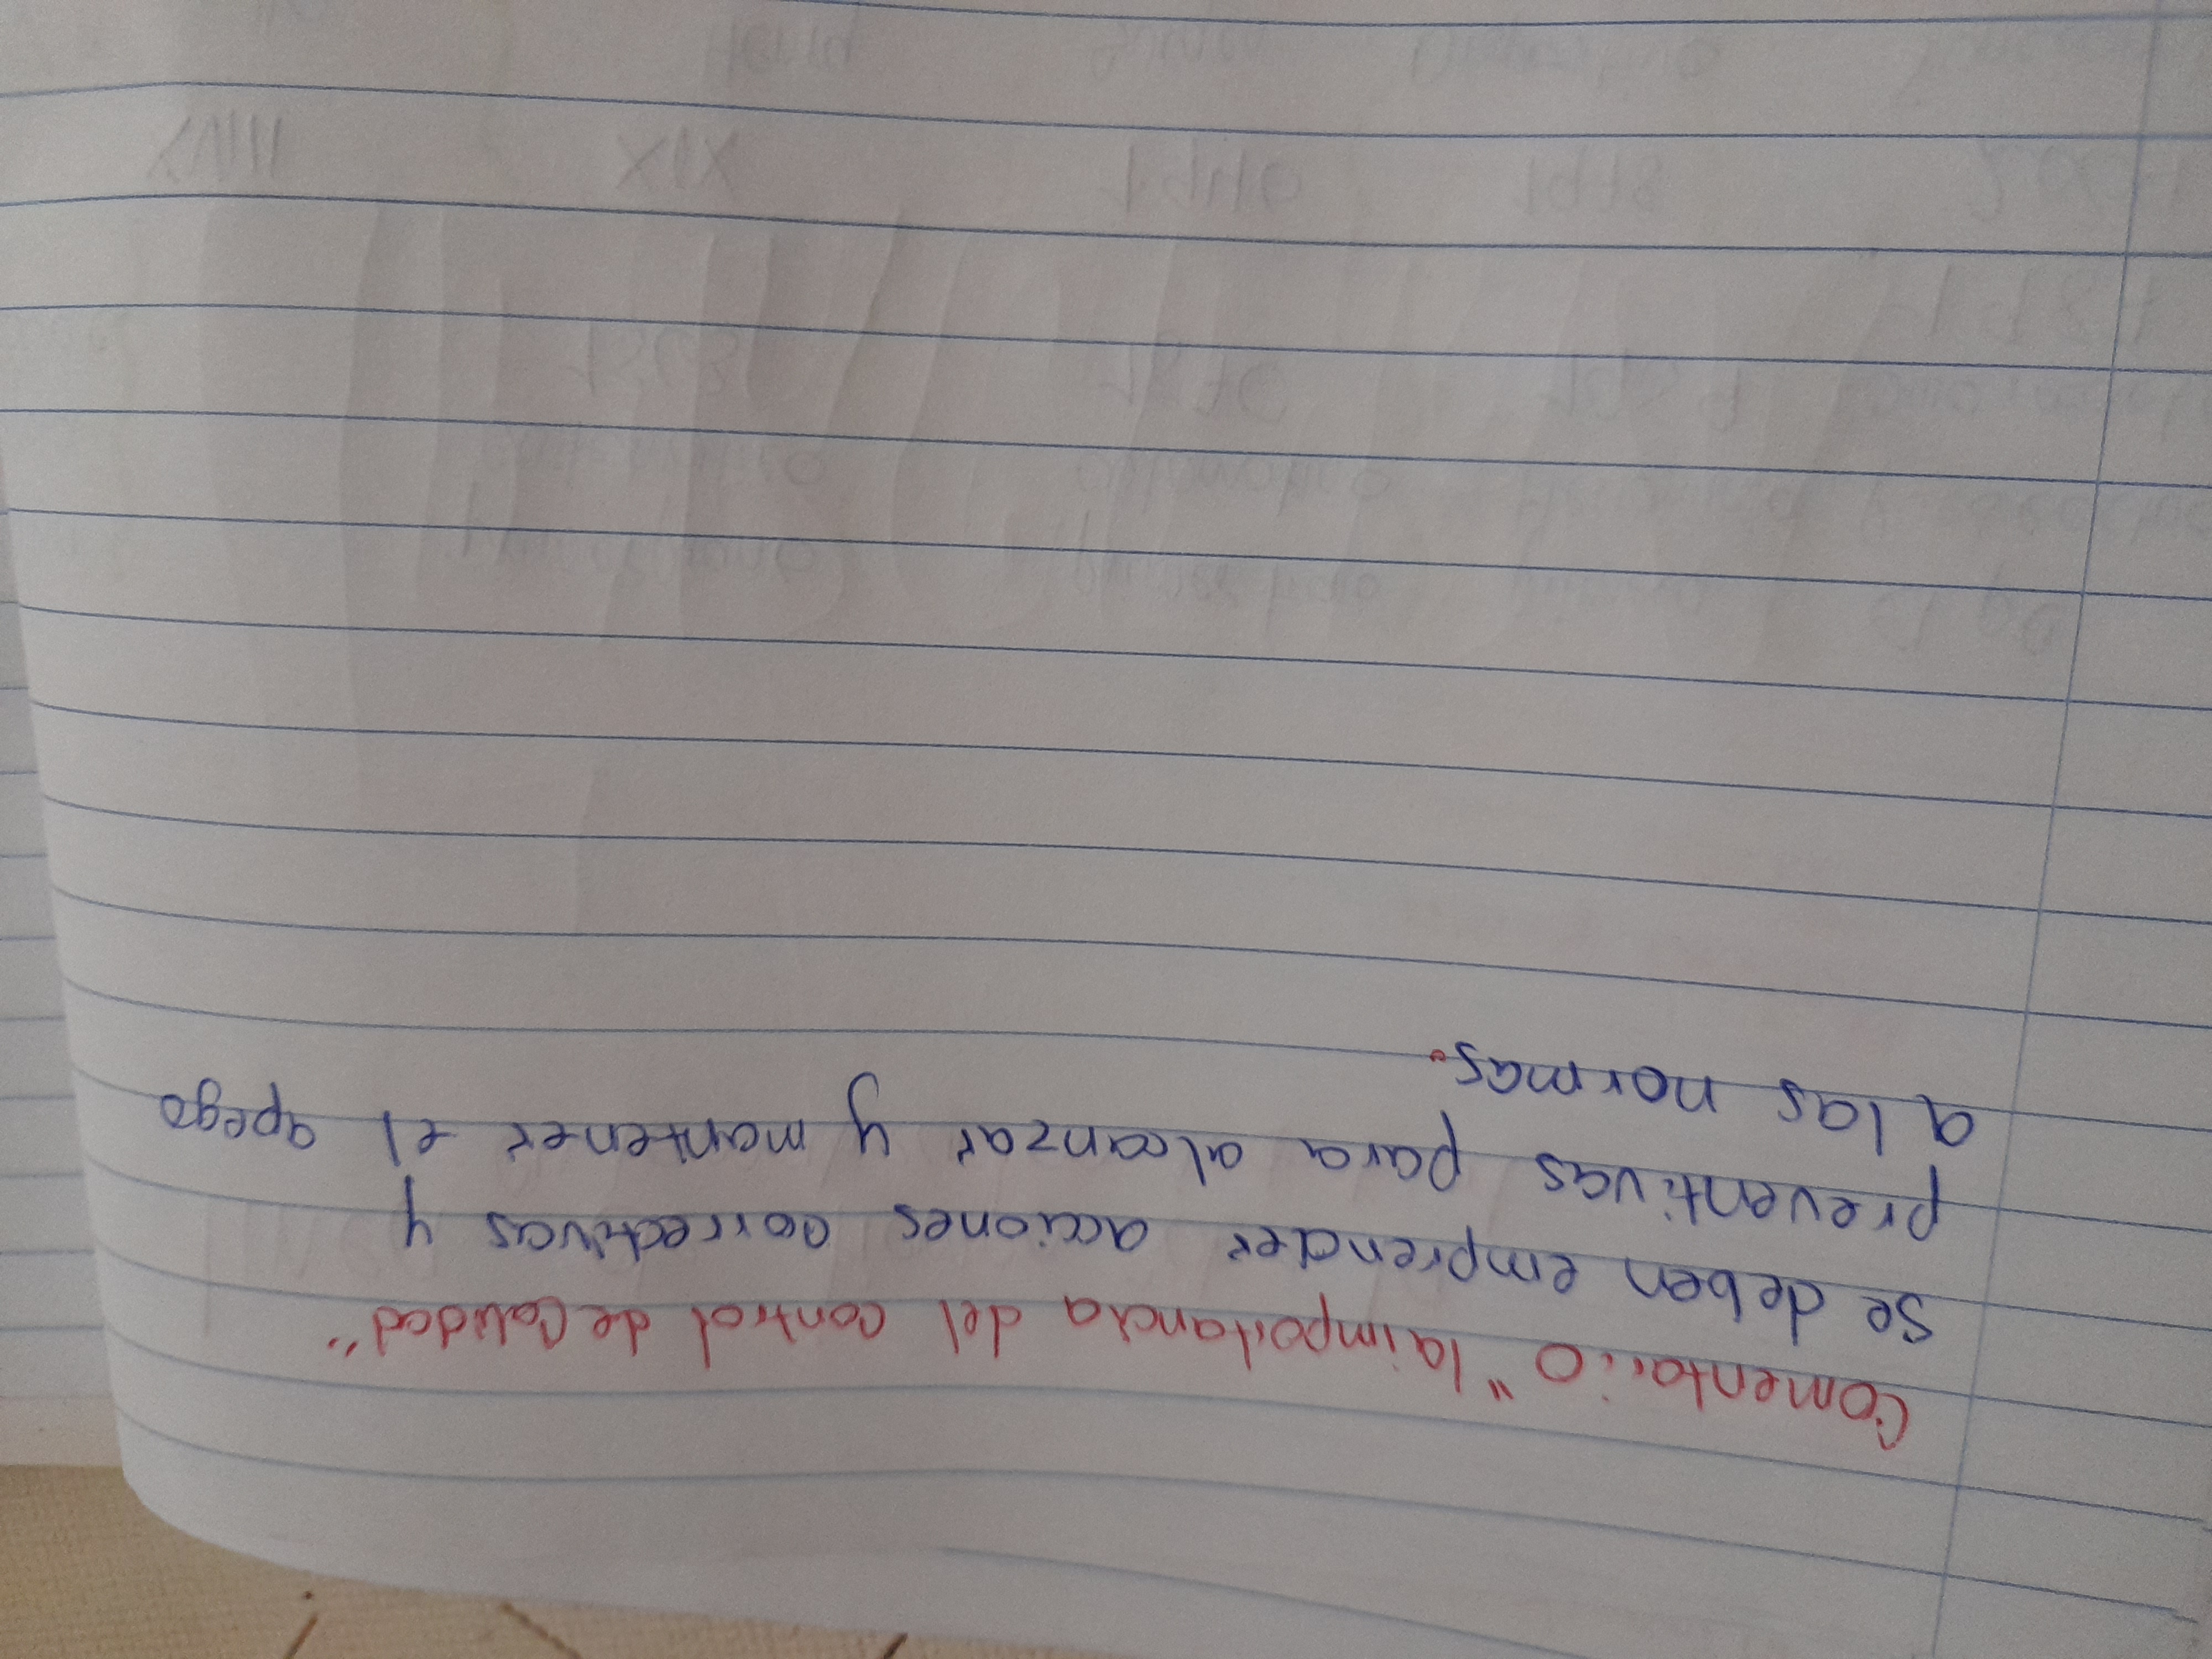 Comentario "la importancia del control de Calidad"
se deben emprender acciones correctivas y
preventivas para alcanzar y mantener el apego
a las normas.